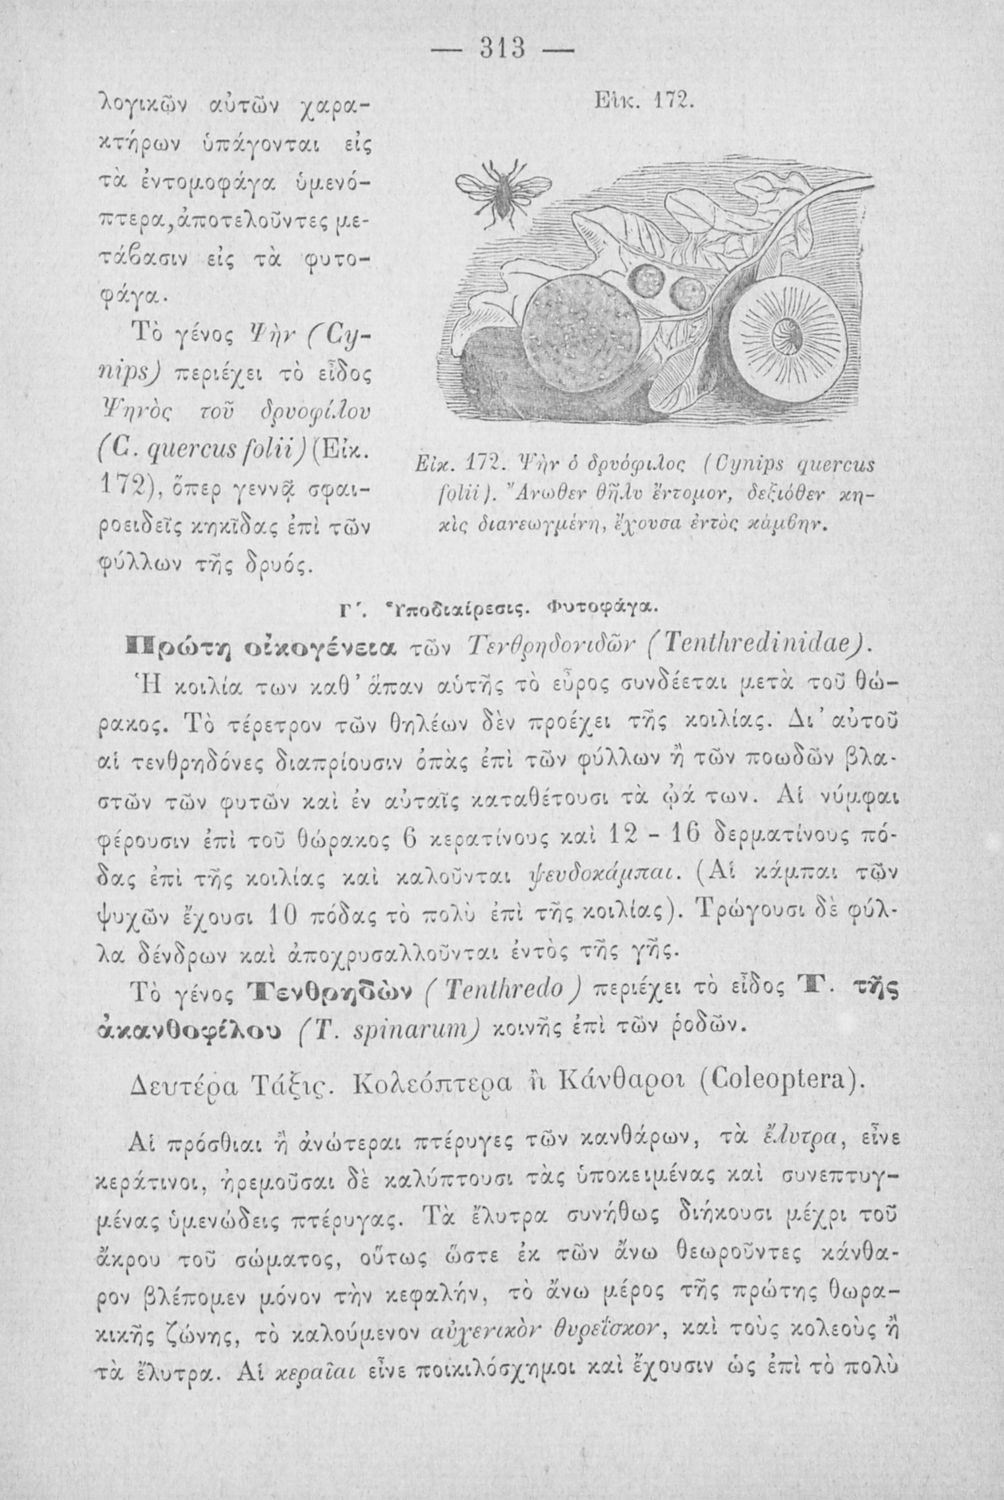 — 313 —
λογικῶν αὐτῶν χαρα-
κτήρων ὑπάγονται εἰς
τὰ ἐντομοφάγα ὑμενό-
πτερα, ἀποτελοῦντες με-
τάβασιν εἰς τὰ φυτο-
φάγα.
Τὸ γένος Ψὴν (Cy-
nips) περιέχει τὸ εἶδος
Ψηνὸς τοῦ δρυοφίλου
(C. quercus folii) (Εἰκ.
172), ὅπερ γεννᾷ σφαι-
ροειδεῖς κηκῖδας ἐπὶ τῶν
φύλλων τῆς δρυός.
Εἰκ. 172.
Εἰκ. 172. Ψὴν ὁ δρυόφιλος (Cynips quercus
folii). Ἄνωθεν θῆλυ ἔντομον, δεξιόθεν κη-
κὶς διανεωγμένη, ἔχουσα ἐντὸς κάμβην.
Γ΄. Ὑποδιαίρεσις. Φυτοφάγα.
Πρώτη οἰκογένεια τῶν Τενθρηδονιδῶν (Tenthredinidae).
Ἡ κοιλία των καθ' ἅπαν αὑτῆς τὸ εὖρος συνδέεται μετὰ τοῦ θώ-
ρακος. Τὸ τέρετρον τῶν θηλέων δὲν προέχει τῆς κοιλίας. Δι' αὐτοῦ
αἱ τενθρηδόνες διαπρίουσιν ὀπὰς ἐπὶ τῶν φύλλων ἢ τῶν ποωδῶν βλα-
στῶν τῶν φυτῶν καὶ ἐν αὐταῖς καταθέτουσι τὰ ᾠά των. Αἱ νύμφαι
φέρουσιν ἐπὶ τοῦ θώρακος 6 κερατίνους καὶ 12 - 16 δερματίνους πό-
δας ἐπὶ τῆς κοιλίας καὶ καλοῦνται ψευδοκάμπαι. (Αἱ κάμπαι τῶν
ψυχῶν ἔχουσι 10 πόδας τὸ πολὺ ἐπὶ τῆς κοιλίας). Τρώγουσι δὲ φύλ-
λα δένδρων καὶ ἀποχρυσαλλοῦνται ἐντὸς τῆς γῆς.
Τὸ γένος Τενθρηδὼν (Tenthredo) περιέχει τὸ εἶδος Τ. τῆς
ἀκανθοφίλου (T. spinarum) κοινῆς ἐπὶ τῶν ῥοδῶν.
Δευτέρα Τάξις. Κολεόπτερα ἢ Κάνθαροι (Coleoptera).
Αἱ πρόσθιαι ἢ ἀνώτεραι πτέρυγες τῶν κανθάρων, τὰ ἔλυτρα, εἶνε
κεράτινοι, ἠρεμοῦσαι δὲ καλύπτουσι τὰς ὑποκειμένας καὶ συνεπτυγ-
μένας ὑμενώδεις πτέρυγας. Τὰ ἔλυτρα συνήθως διήκουσι μέχρι τοῦ
ἄκρου τοῦ σώματος, οὕτως ὥστε ἐκ τῶν ἄνω θεωροῦντες κάνθα-
ρον βλέπομεν μόνον τὴν κεφαλήν, τὸ ἄνω μέρος τῆς πρώτης θωρα-
κικῆς ζώνης, τὸ καλούμενον αὐχενικὸν θυρεΐσκον, καὶ τοὺς κολεοὺς ἢ
τὰ ἔλυτρα. Αἱ κεραῖαι εἶνε ποικιλόσχημοι καὶ ἔχουσιν ὡς ἐπὶ τὸ πολὺ